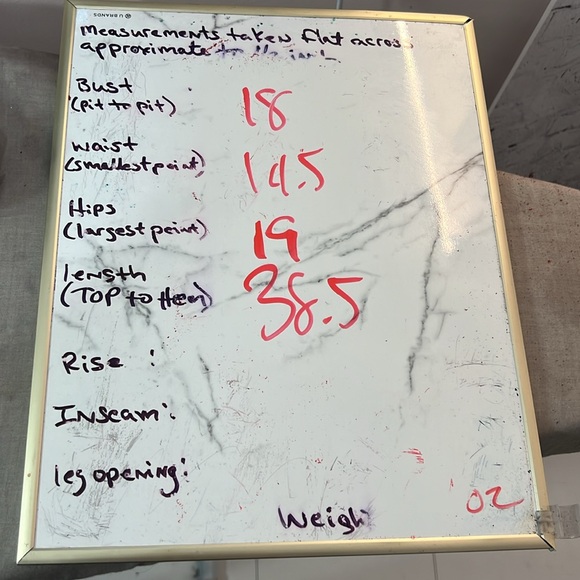 U BRANDS
measurements taken flat across
approximate to the inch
Bust
(pit to pit) 18
waist
(smallest point) 14.5
Hips
(largest point) 19
length
(TOP to Hem) 38.5
Rise :
Inseam:
leg opening:
Weigh oz